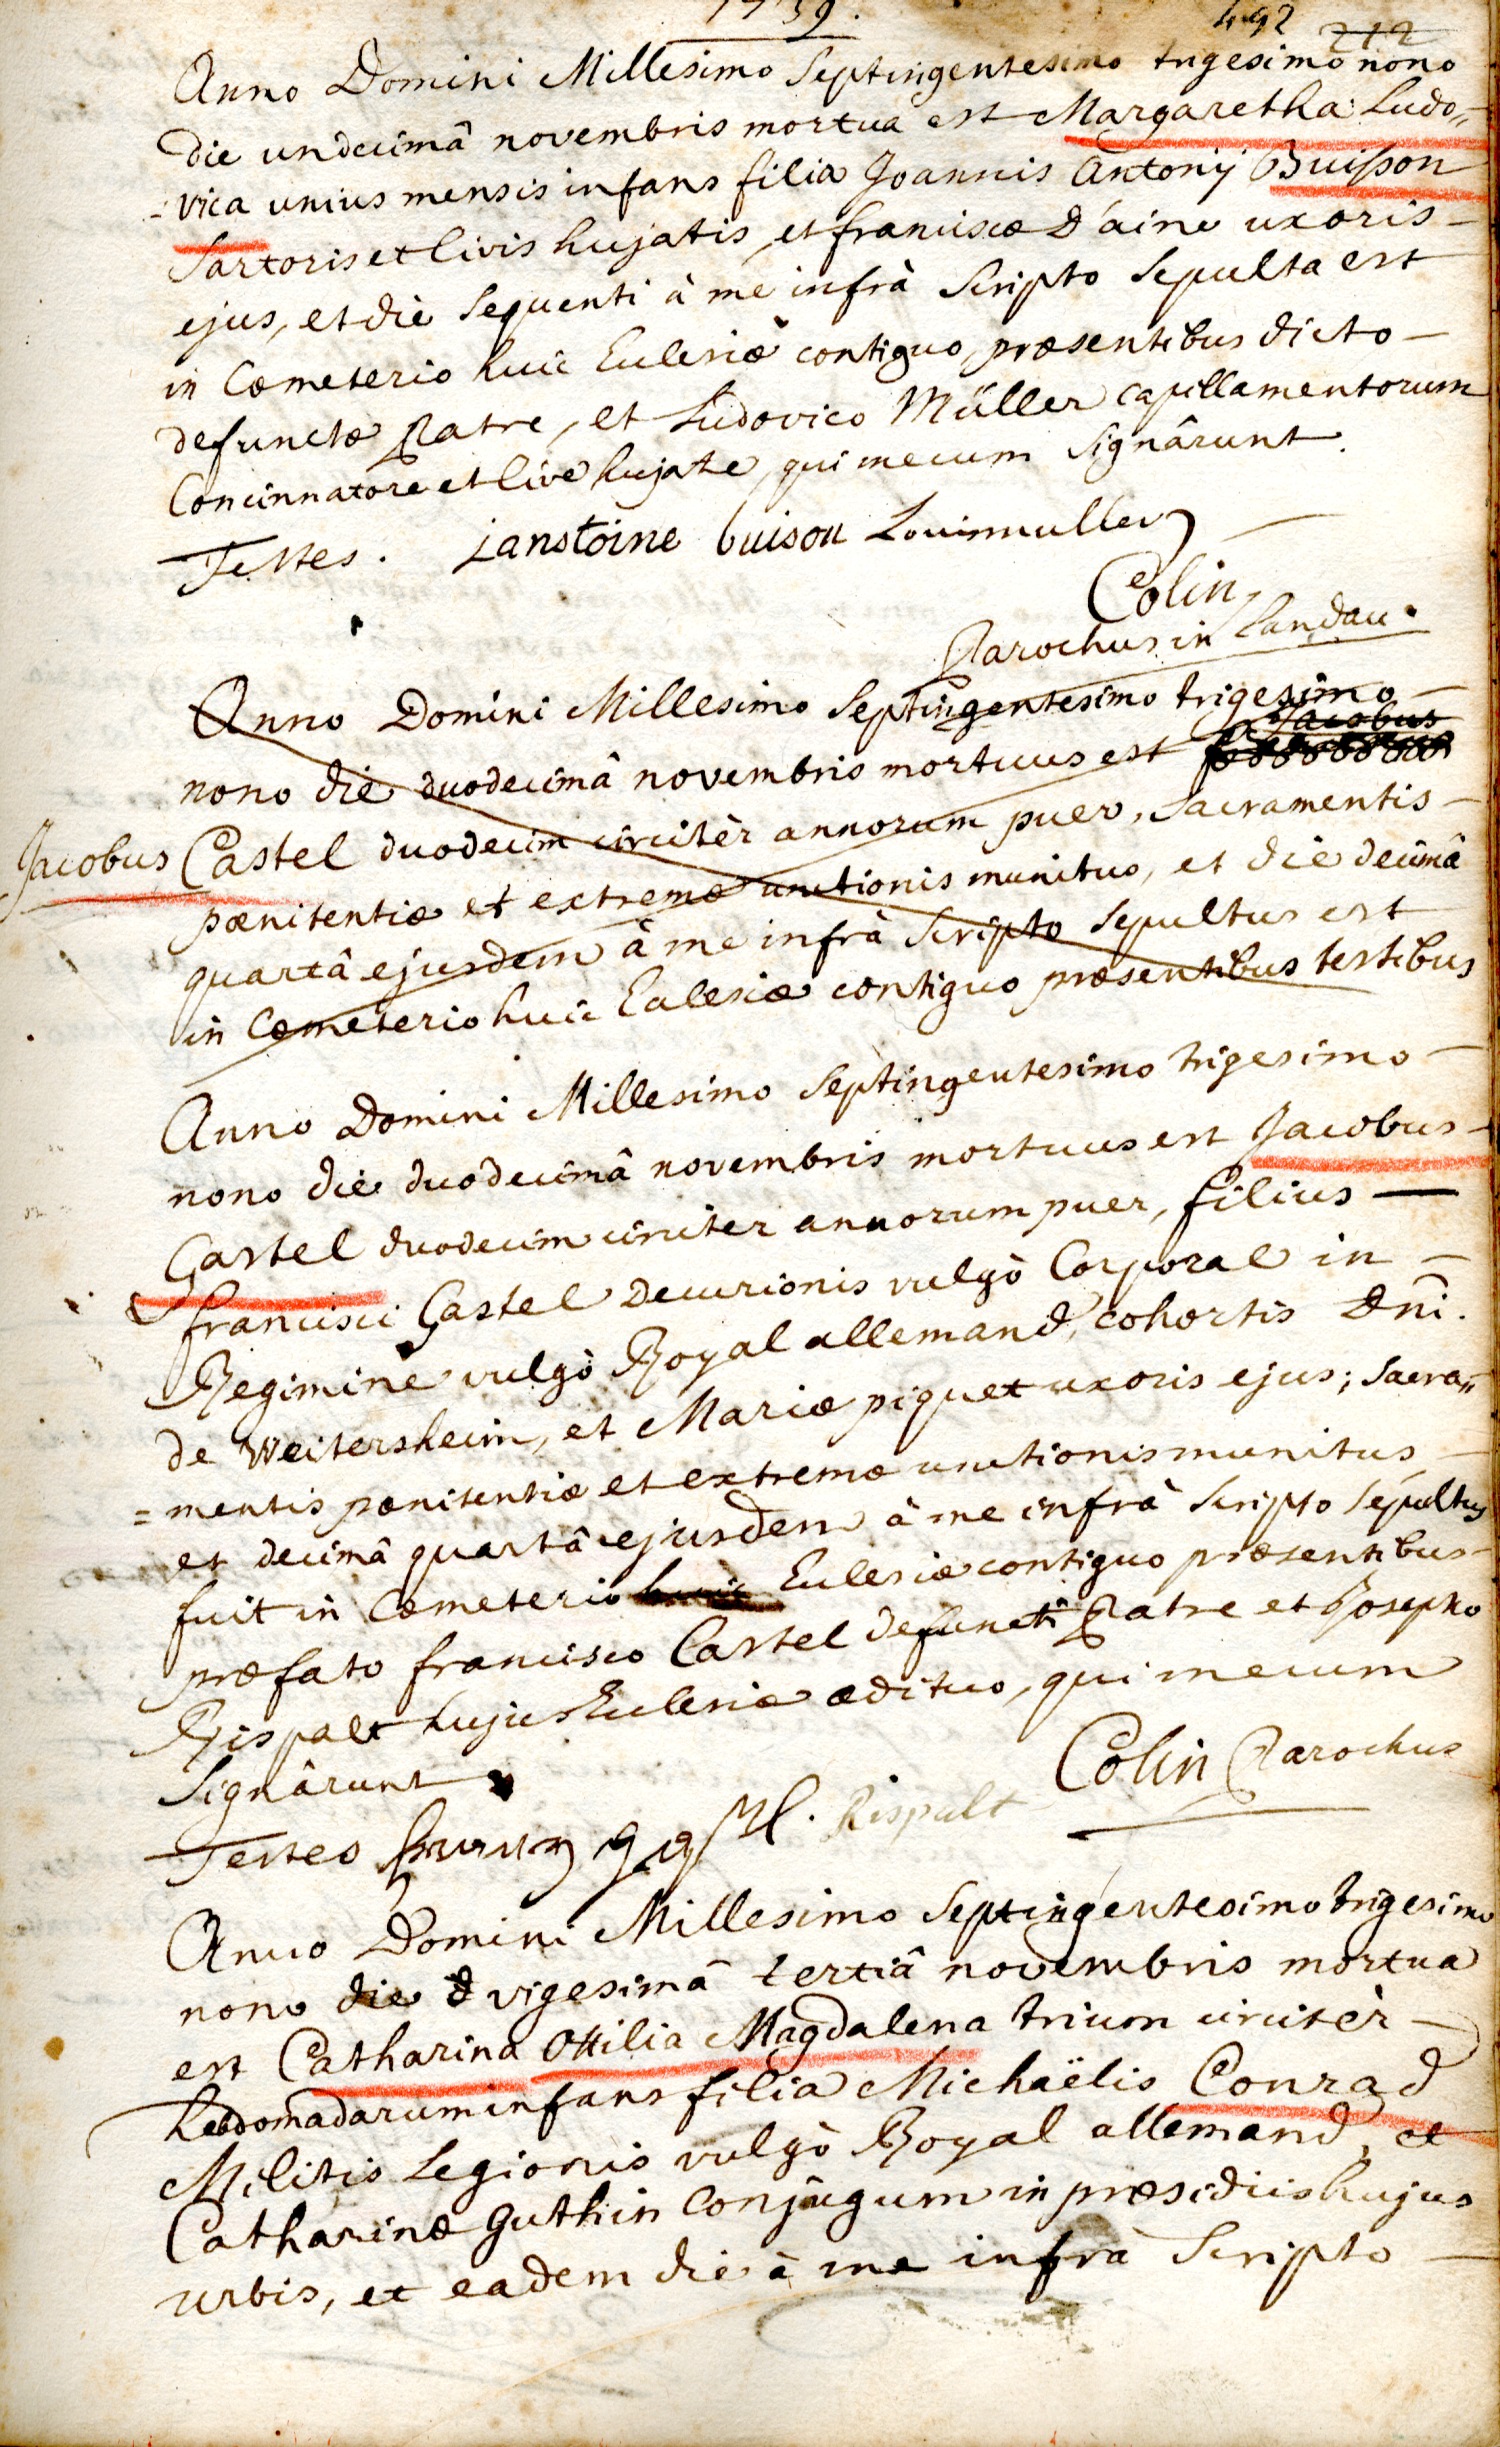 1739.
492 212
Anno Domini Millesimo Septingentesimo trigesimo nono
die undecimâ novembris mortua est Margaretha Ludo„
=vica unius mensis infans filia Joannis Antonij Buisson
Sartoris et Civis hujatis, et franciscæ D'aine uxoris –
ejus, et die sequenti à me infrà Scripto Sepulta est
in Cæmeterio huic Ecclesiæ contiguo, præsentibus dicto –
defunctæ Patre, et Ludovico Müller capillamentorum
Concinnatore et Cive hujate, qui mecum Signârunt.
Testes. janstoine buison Louismuller
Colin
Parochus in Landau.
Anno Domini Millesimo Septingentesimo trigesimo –
Jacobus
nono die duodecimâ novembris mortuus est
Jacobus Castel duodecim circitèr annorum puer, Sacramentis –
pœnitentiæ et extremæ unctionis munitus, et die decimâ
quartâ ejusdem à me infrà Scripto Sepultus est
in Cæmeterio huic Ecclesiæ contiguo præsentibus testibus
Anno Domini Millesimo Septingentesimo trigesimo –
nono die duodecimâ novembris mortuus est Jacobus –
Castel duodecim circiter annorum puer, filius —
francisci Castel Decurionis vulgò Corporal in –
Regimine vulgò Royal allemand, cohortis Dni.
de Weitersheim, et Mariæ piquet uxoris ejus; Sacra„
=mentis pœnitentiæ et extremæ unctionis munitus, –
et decimâ quartâ ejusdem à me infrà Scripto Sepultus
fuit in Cæmeterio huic Ecclesiæ contiguo præsentibus –
præfato francisco Castel defuncti Patre et Josepho
Rispalt hujus Ecclesiæ ædituo, qui mecum
Signârunt
Colin Parochus
Testes Rispalt
Anno Domini Millesimo Septingentesimo trigesimo
nono die d vigesimâ tertiâ novembris mortua
est Catharina Ottilia Magdalena trium circitèr –
hebdomadarum infans filia Michaëlis Conrad
Militis Legionis vulgò Royal allemand, et
Catharinæ Guthin Conjugum in præsidiis hujus
urbis, et eadem die à me infrà Scripto –